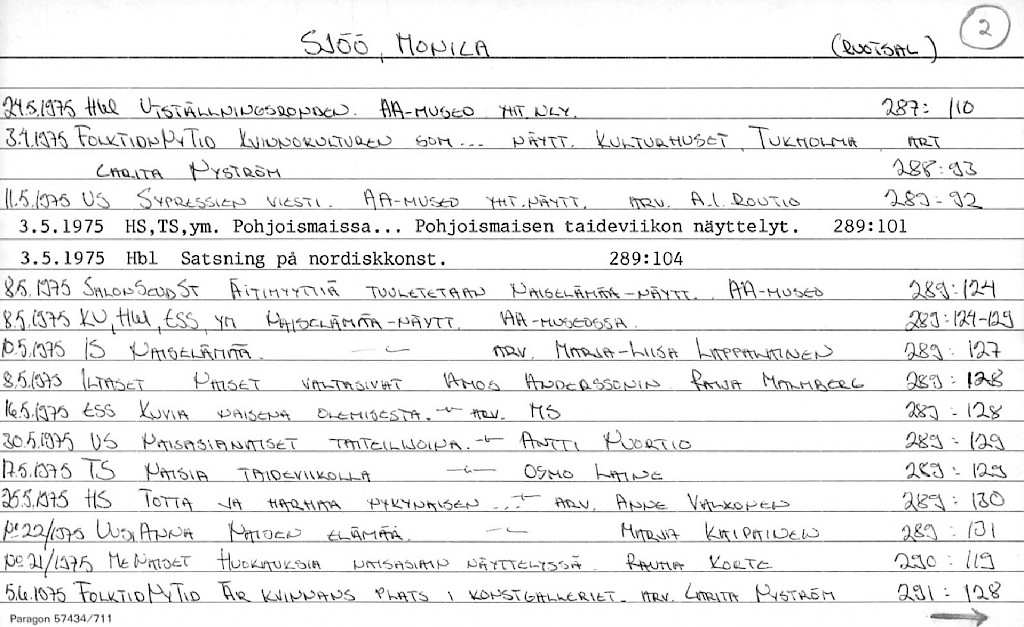 SJÖÖ, MONICA (RUOTSAL.) 2
24.5.1975 Hbl UTSTÄLLNINGSRONDEN. AA-MUSEO YHT.NLY. 287: 110
3.4.1975 FOLKTIDNNYTID KVINNOKULTUREN SOM... NÄYTT. KULTURHUSET, TUKHOLMA ART
CARITA NYSTRÖM 288:93
11.5.1975 US SYPRESSIEN VIESTI. AA-MUSEO YHT.NÄYTT. ARV. A.I. ROUTIO 289:92
3.5.1975 HS,TS,ym. Pohjoismaissa... Pohjoismaisen taideviikon näyttelyt. 289:101
3.5.1975 Hbl Satsning på nordiskkonst. 289:104
8.5.1975 SALONSEUDST ÄITIMYYTTIÄ TUULETETAAN NAISELÄMÄÄ-NÄYTT. AA-MUSEO 289:124
8.5.1975 KU, Hbl, ESS, YM NAISELÄMÄÄ-NÄYTT. AA-MUSEOSSA. 289:124-129
10.5.1975 IS NAISELÄMÄÄ. -"- ARV. MARJA-LIISA LAPPALAINEN 289: 127
8.5.1975 ILTASET NAISET VALTASIVAT AMOS ANDERSSONIN. RAIJA MALMBERG 289: 128
16.5.1975 ESS KUVIA NAISENA OLEMISESTA. -"- ARV. MS 289: 128
30.5.1975 US NAISASIANAISET TAITEILIJOINA. -"- ANTTI VUORTIO 289: 129
17.5.1975 TS NAISIA TAIDEVIIKOLLA -"- OSMO LAINE 289: 129
25.5.1975 HS TOTTA JA HARHAA NYKYNAISEN ... -"- ARV. ANNE VALKONEN 289: 130
No 22/1975 UUSI ANNA NAISEN ELÄMÄÄ. -"- MARJA KAIPAINEN 289: 131
No 21/1975 ME NAISET HUOKAUKSIA NAISASIAIN NÄYTTELYSSÄ. RAUHA KORTE 290: 119
5.6.1975 FOLKTIDNNYTID ÄR KVINNANS PLATS I KONSTGALLERIET. ARV. CARITA NYSTRÖM 291: 128
Paragon 57434/711